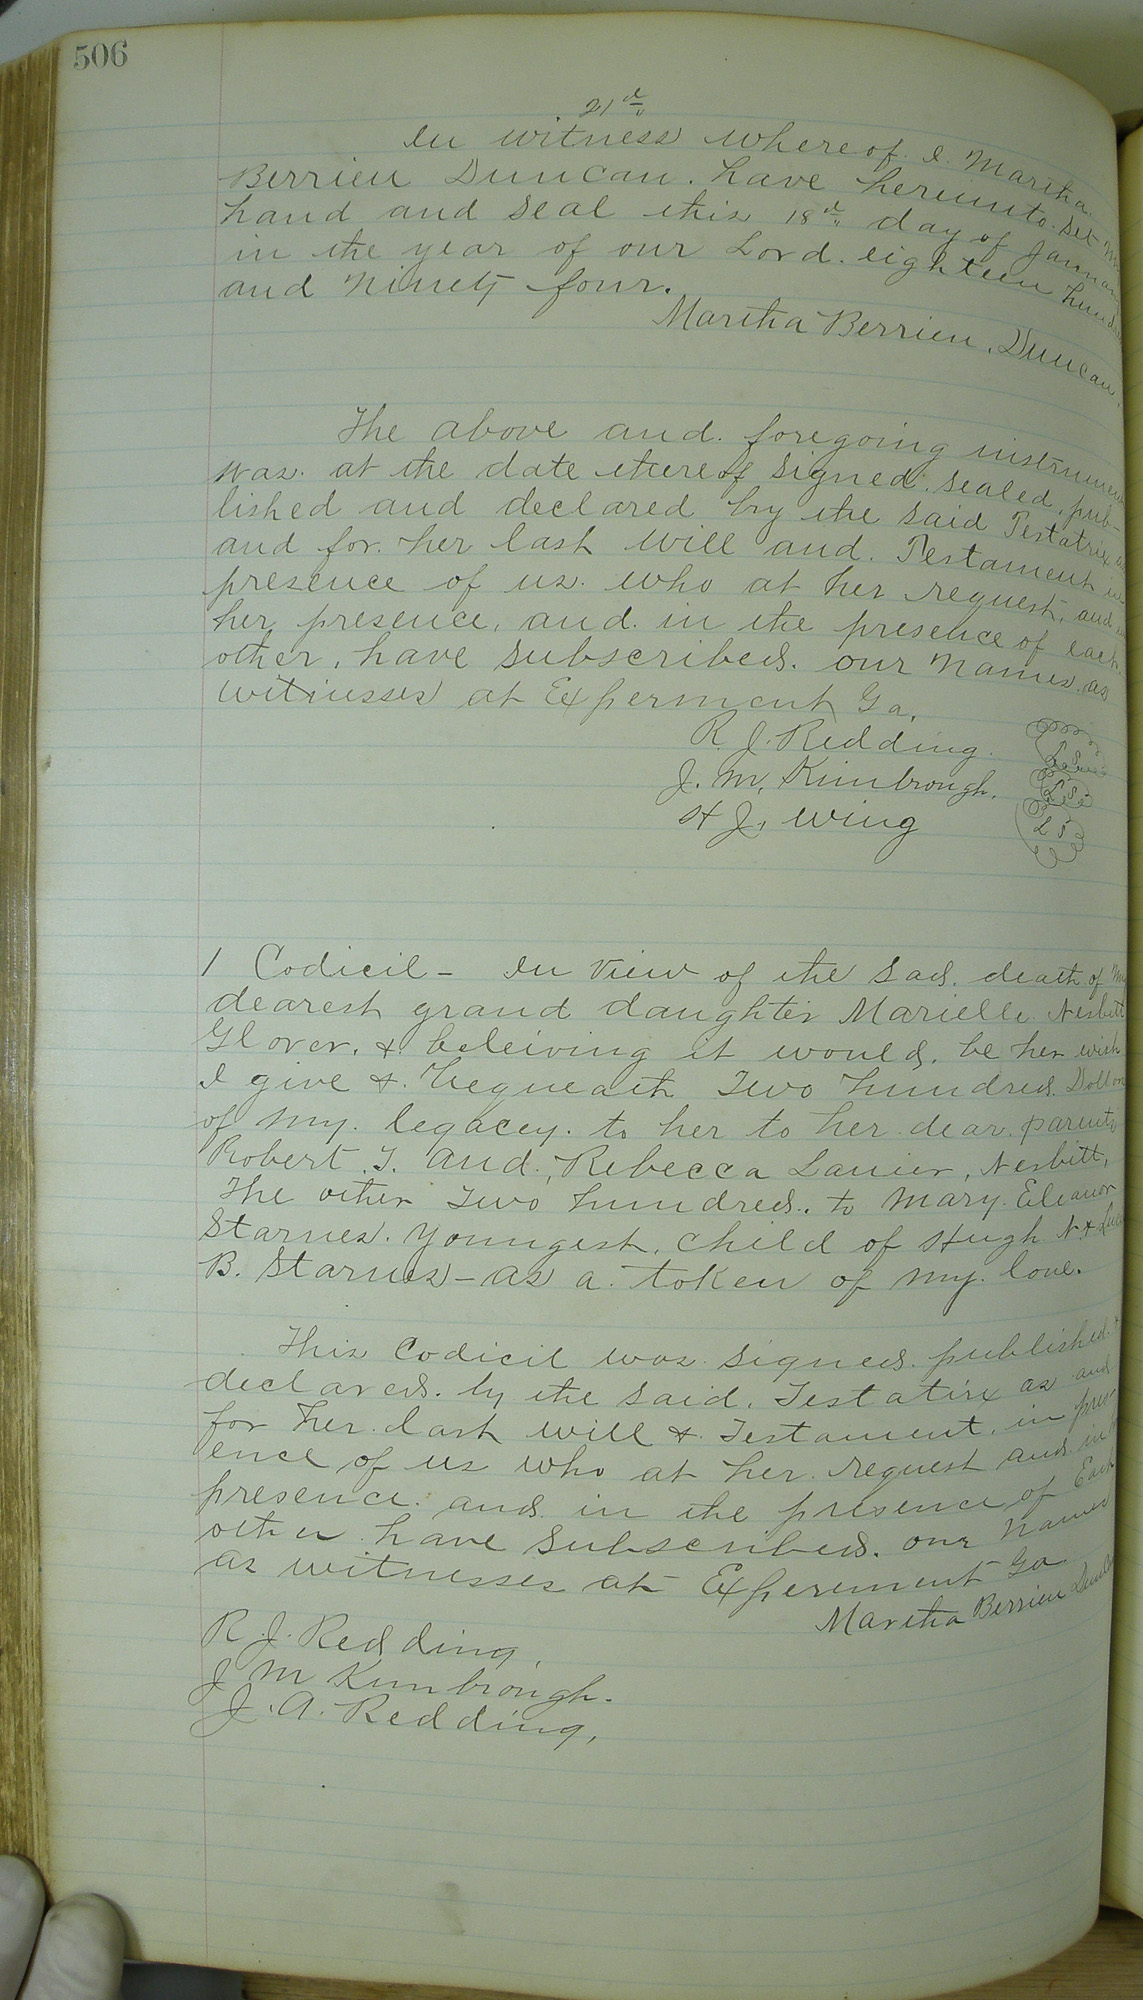 506
21st
In witness whereof. I. Martha.
Berrien Duncan. have hereunto. set my
hand and seal this 18th day of January
in the year of our Lord. eighteen hund
and Ninety four.
Martha Berrien. Duncan.
The above and. foregoing instrument
was. at the date thereof signed. sealed, pub-
lished and declared by the said Testatrix as
and for. her last will and. Testament in
presence of us. who at her request, and in
her presence, and. in the presence of each
other, have subscribed. our names. as
witnesses at Experment Ga.
R. J. Redding. L.S.
J. M. Kimbrough. L.S.
H J. Wing L S
1 Codicil - In view of the sad. death of my
dearest grand daughter Marielle Nesbitt
Glover. & beleiving it would. be her wish
I give & bequeath Two hundred. Dollars
of my. legacey. to her to her dear. parents
Robert. T. and. Rebecca Lanier, Nesbitt,
The other Two hundred. to Mary. Eleanor
Starnes. Youngest. child of Hugh N & Lucy
B. Starnes - as a. token of my. love.
This Codicil was. signed. published. &
declared. by the said. Testatirx as and
for her. last will & Testament. in pres-
ence of us who at her. request and. in
presence. and. in the presence of Each
other have subscribed. our names
as witnesses at Experement Ga
Martha Berrien Duncan
R. J. Redding,
J M Kimbrough.
J. A. Redding,